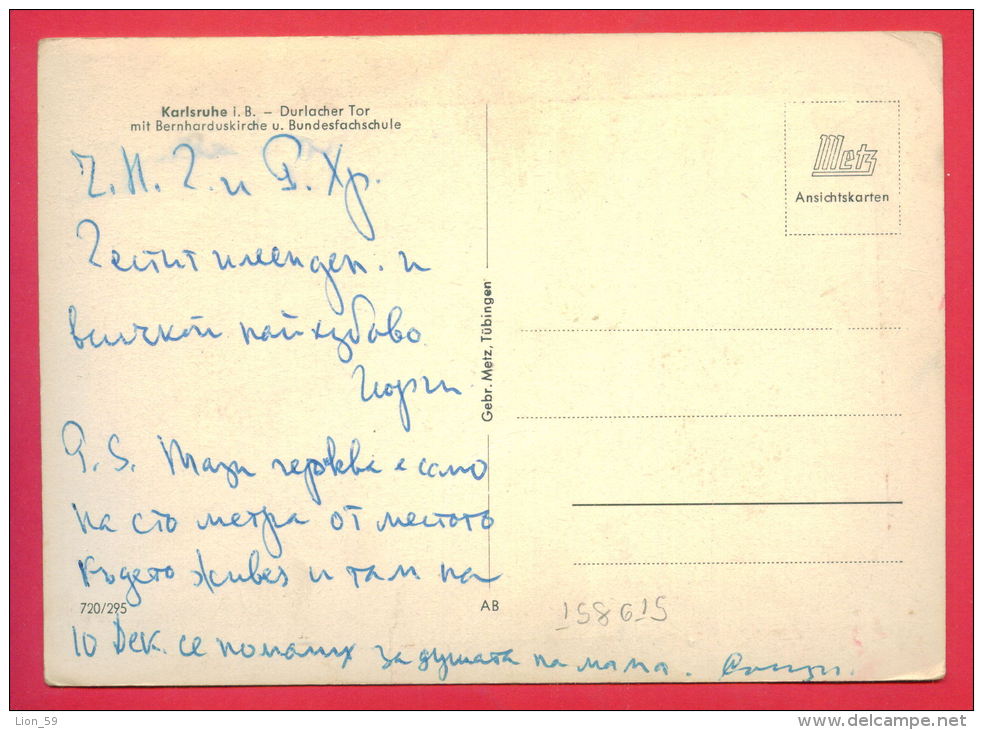 Karlsruhe i. B. – Durlacher Tor
mit Bernharduskirche u. Bundesfachschule
Metz
Ansichtskarten
Ч. Н. Г. и Р. Хр.
Честит имен ден. и
всичкой най хубово
P. S. Тази черква е само
на сто метра от местото
където живея и там на
10 Дек. се помолих за душата на мама.
Gebr. Metz, Tübingen
720/295
AB
158615
Lion_59
www.delcampe.net